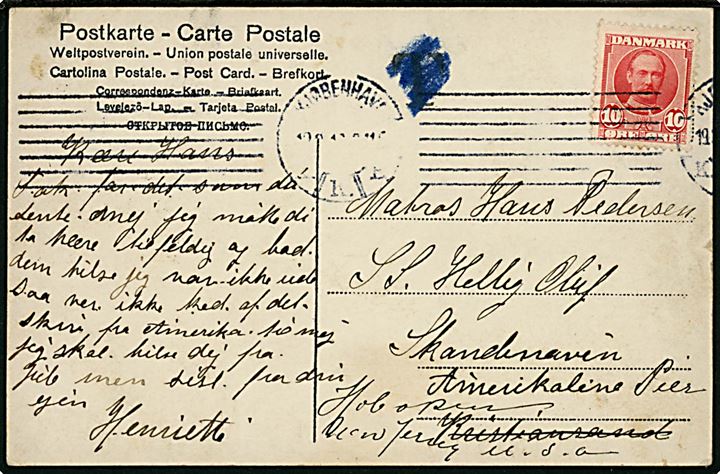 Postkarte - Carte Postale
Weltpostverein. - Union postale universelle.
Cartolina Postale. - Post Card. - Brefkort.
Correspondenz-Karte. - Briefkaart.
Levelező-Lap. - Tarjeta Postal.
ОТКРЫТОЕ ПИСЬМО.
DANMARK
10 10
KJØBENHAVN
Kære Hans
Tak for det som du
sente mej jeg måtte
og bad
dem hilse jeg var ikke ude
Saa vær ikke ked af det
skriv fra Amerika til mej
jeg skal hilse dej fra
men sist fra din
egen
Henriette
Matros Hans Pedersen
S.S. Hellig Olaf
Skandinavien
Amerikaline Pier
Hoboken
New Jersey Kristiansand
U.S.A